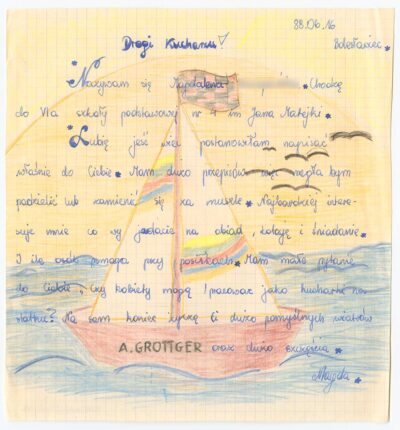 88.06.16
Drogi Kucharzu!
Bolesławiec.
Nazywam się Magdalena Chodzę
do VIa szkoły podstawowej nr 4 im Jana Matejki.
Lubię jeść więc postanowiłam napisać
właśnie do Ciebie. Mam dużo przepisów więc mogła bym
podzielić lub zamienić się za muszle. Najbardziej intere-
suje mnie co wy jadacie na obiad, kolację i śniadanie.
I ile osób pomaga przy posiłkach. Mam małe pytanie
do Ciebie, Czy kobiety mogą pracować jako kucharke na
statku? Na sam koniec życzę Ci dużo pomyślnych wiatrów
A. GROTTGER oraz dużo szczęścia
Magda